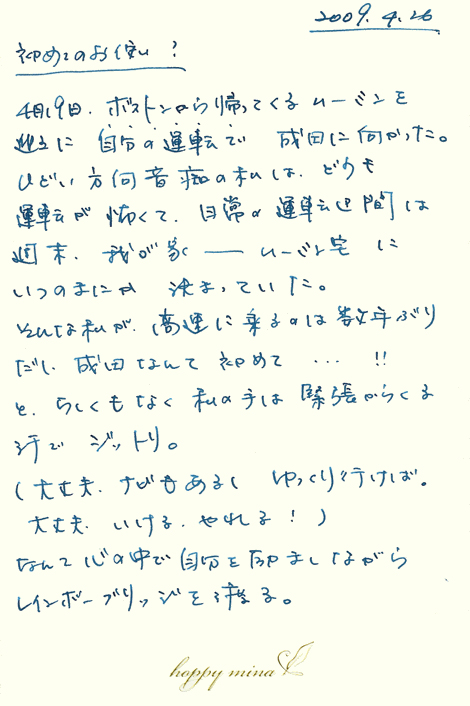 2009.4.26
初めてのお使い?
4月19日、ボストンから帰ってくるムーミンを
迎えに 自分の運転で 成田に向かった。
ひどい方向音痴の私は、どうも
運転が怖くて、日常の運転区間は
週末、我が家 ― ムーミン宅 に
いつのまにか 決まっていた。
そんな私が、高速に乗るのは数年ぶり
だし、成田なんて 初めて … !!
と、らしくもなく 私の手は緊張からくる
汗で ジットリ。
(大丈夫、ナビもあるし ゆっくり行けば。
大丈夫、いける、やれる!)
なんて心の中で自分を励ましながら
レインボーブリッジを渡る。
happy mina